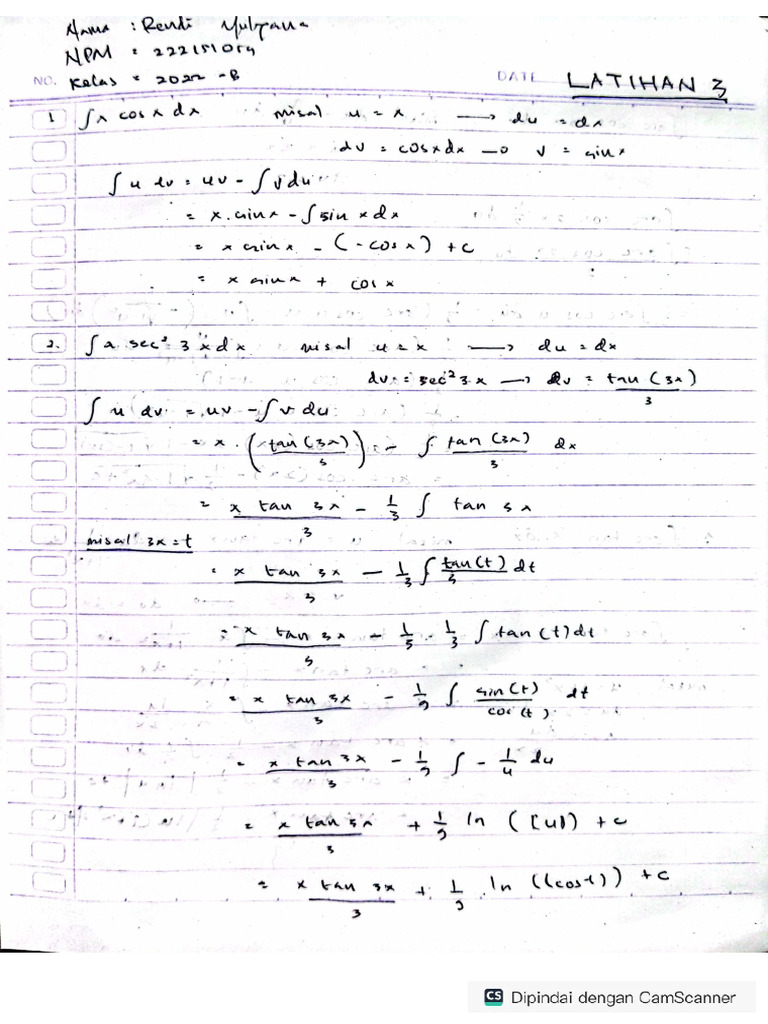 Nama : Rendi Mulyana
NPM : 222151059
NO. Kelas : 2022 -B DATE LATIHAN 3
1 ∫x cos x dx misal u = x → du = dx
dv = cosxdx → v = sinx
∫u dv = uv - ∫v du
= x . sinx - ∫sin x dx
= x sinx - (-cos x) + c
= x sinx + cos x
2. ∫x sec² 3x dx misal u = x → du = dx
dv = sec² 3x → v = tan(3x)/3
∫u dv = uv - ∫v du
= x . (tan(3x)/3) - ∫ tan(3x)/3 dx
= x tan 3x/3 - 1/3 ∫ tan 3x
misal 3x = t
= x tan 3x/3 - 1/3 ∫ tan(t)/3 dt
= x tan 3x/3 - 1/3 . 1/3 ∫ tan(t) dt
= x tan 3x/3 - 1/9 ∫ sin(t)/cos(t) dt
= x tan 3x/3 - 1/9 ∫ - 1/u du
= x tan 3x/3 + 1/9 ln (|u|) + c
= x tan 3x/3 + 1/9 ln (|cos t|) + c
CS Dipindai dengan CamScanner